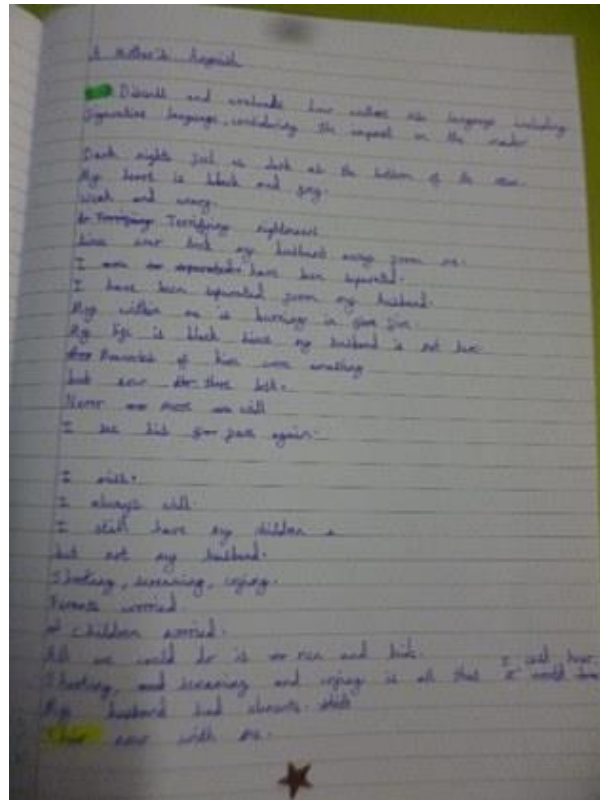 A Mother's Anguish
Discuss and evaluate how authors use language including
figurative language, considering the impact on the reader
Dark nights just as dark as the bottom of the
My heart is black and grey.
Weak and weary.
Terrifying nightmares
have over took my husband away from me.
I have been separated.
I have been separated from my husband.
My within me is burning in fire.
My life is black since my husband is not here
of him were amazing
but now lost.
Never more will
I see his face again.
I wish.
I always will.
I still have my children
but not my husband.
Shooting, screaming, crying.
Parents worried.
Children worried.
All we could do is run and hide.
Shooting, and screaming and crying is all that I could hear.
My husband had always
now with me.